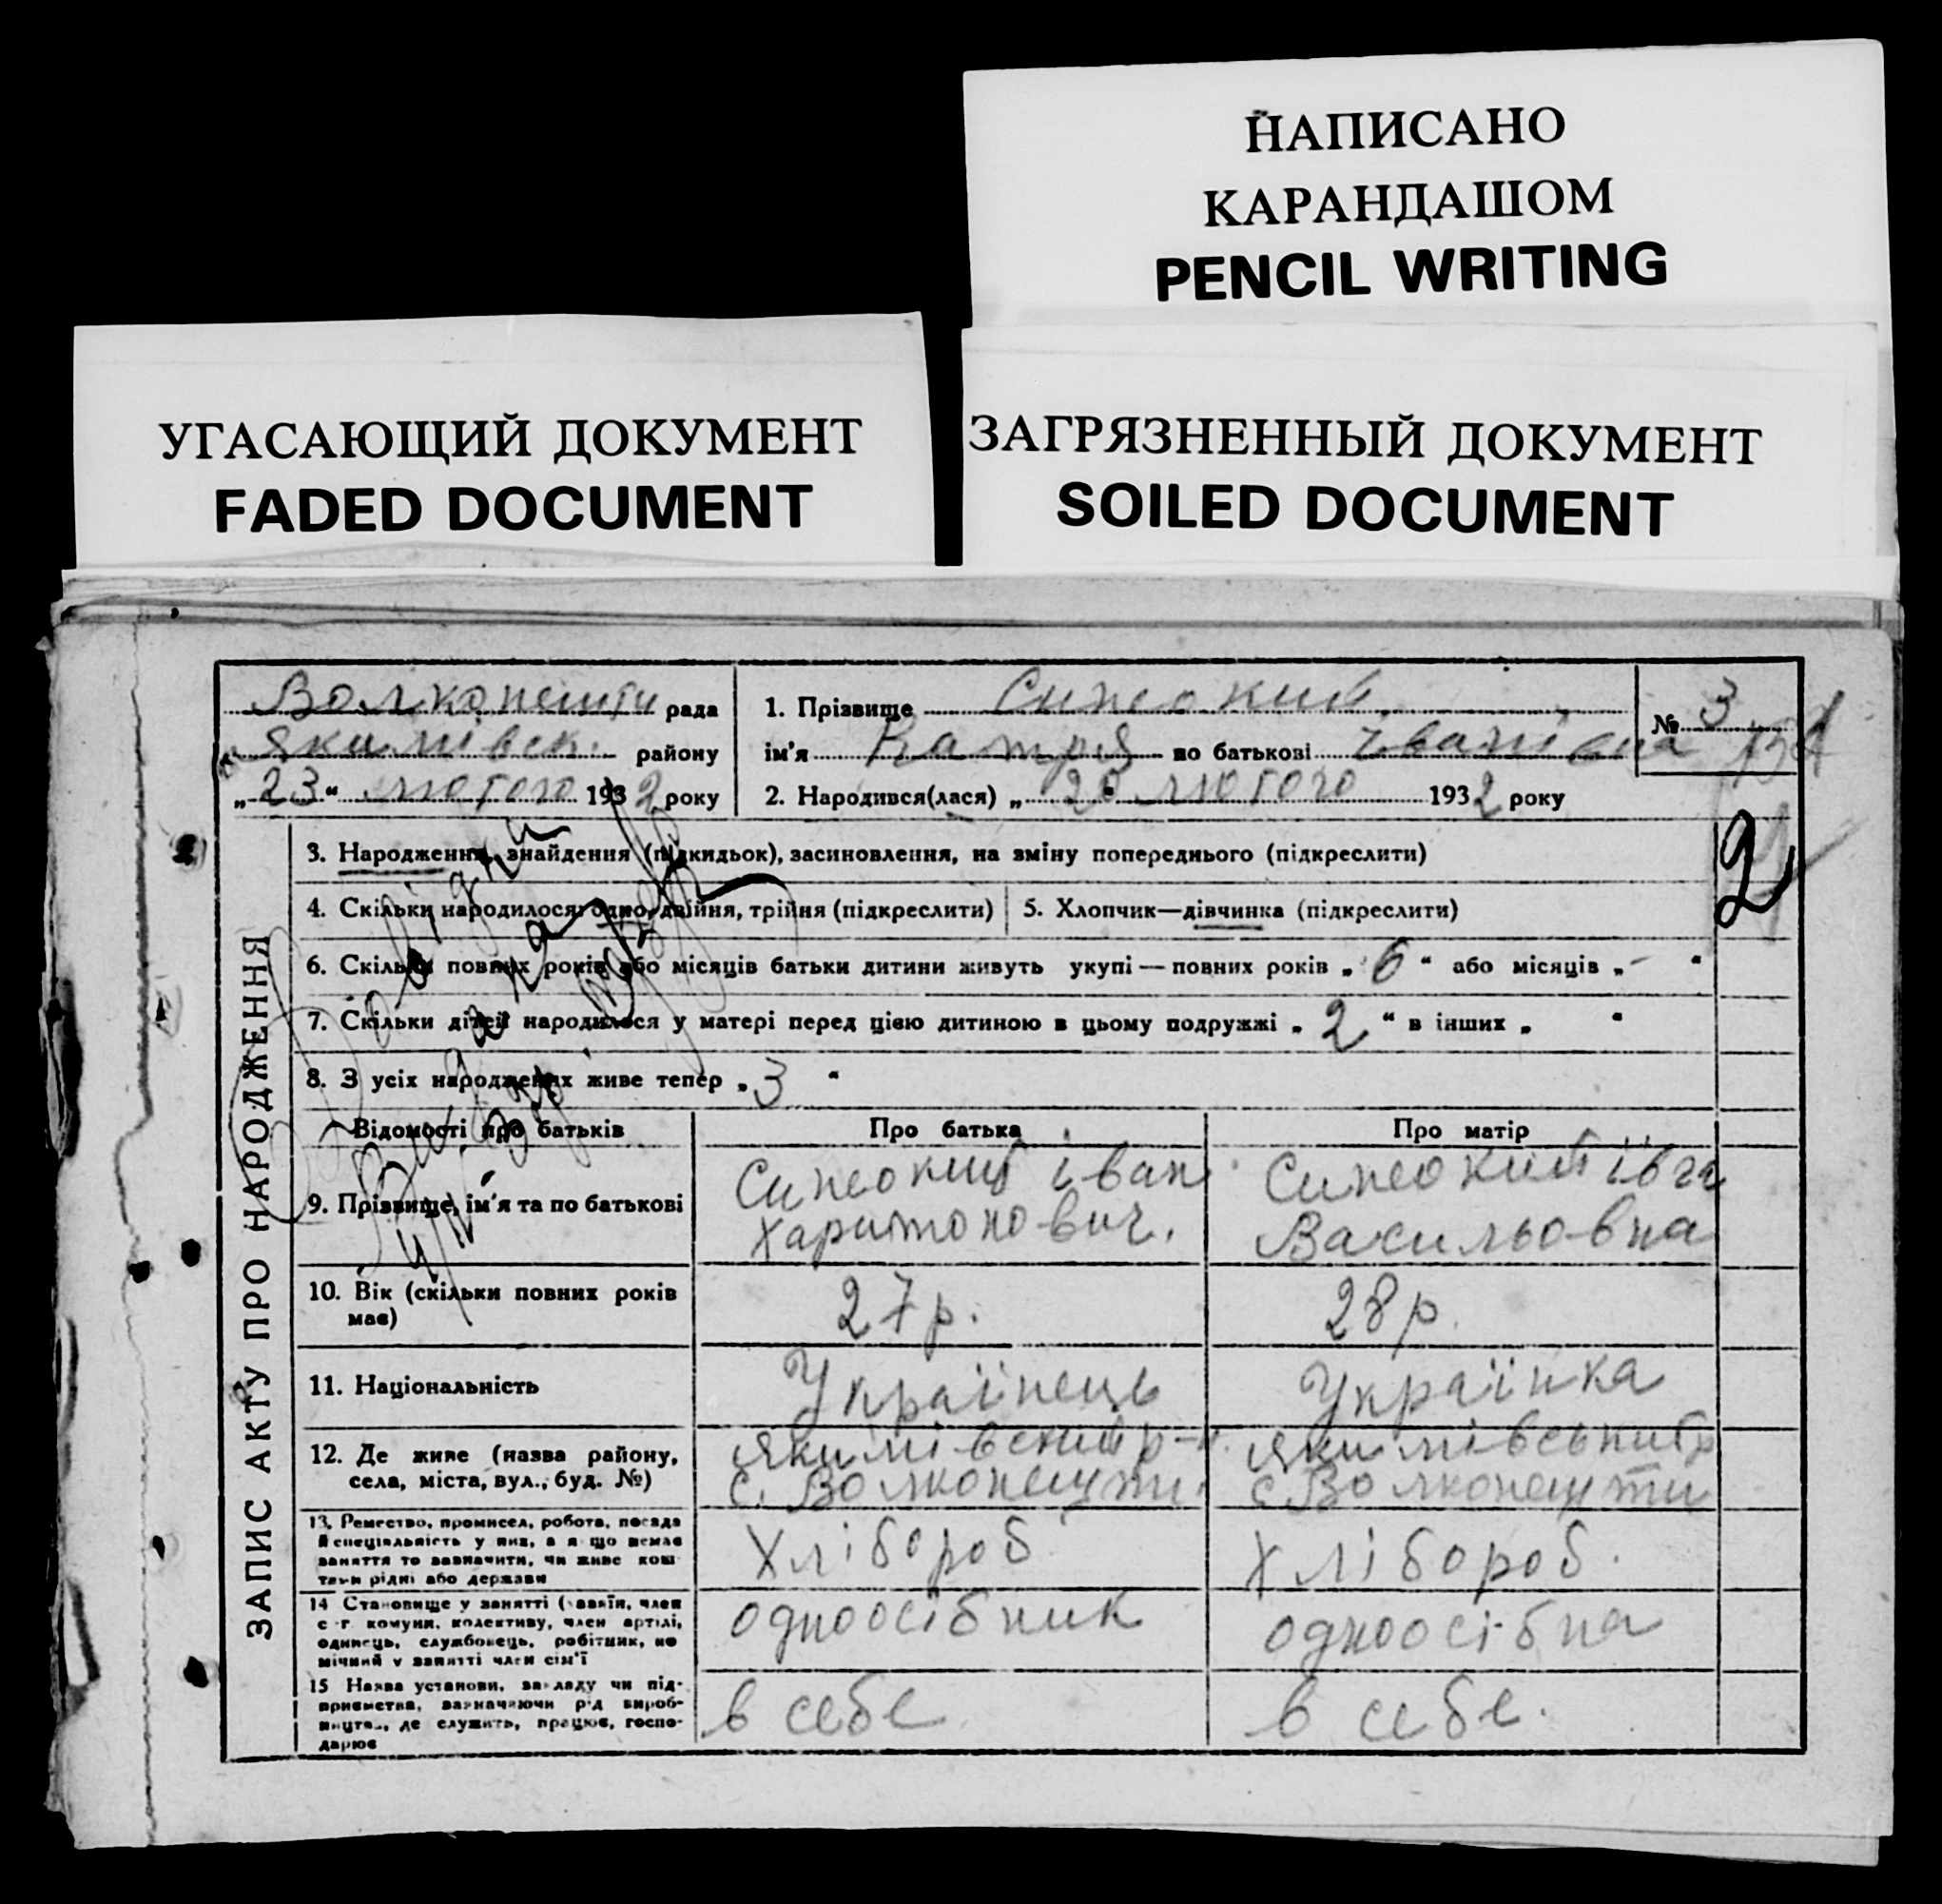 НАПИСАНО
КАРАНДАШОМ
PENCIL WRITING
УГАСАЮЩИЙ ДОКУМЕНТ
FADED DOCUMENT
ЗАГРЯЗНЕННЫЙ ДОКУМЕНТ
SOILED DOCUMENT
Волконешти рада
Якимівск. району
„23“ лютого 1932 року
1. Прізвище Синеокий
ім'я Катря по батькові Іванівна
2. Народився(лася) „20 лютого 1932 року
№ 3
2
ЗАПИС АКТУ ПРО НАРОДЖЕННЯ
3. Народження, знайдення (підкидьок), засиновлення, на зміну попереднього (підкреслити)
4. Скільки народилося: одно, двійня, трійня (підкреслити)
5. Хлопчик—дівчинка (підкреслити)
6. Скільки повних років або місяців батьки дитини живуть укупі — повних років „6“ або місяців „-“
7. Скільки дітей народилося у матері перед цією дитиною в цьому подружжі „2“ в інших „ “
8. З усіх народжених живе тепер „3“
Відомості про батьків
Про батька
Про матір
9. Прізвище, ім'я та по батькові
Синеокий Іван
Харитонович.
Синеокий Івга
Васильовна
10. Вік (скільки повних років
має)
27 р.
28 р.
11. Національність
Українець
Українка
12. Де живе (назва району,
села, міста, вул., буд. №)
Якимівский р-н.
с. Волконешти.
Якимівський р
с Волконешти
13. Ремество, промисел, робота, посада
й спеціяльність у них, а якщо немає
заняття то зазначити, чи живе кош
тами рідні або держави
Хлібороб
Хлібороб.
14 Становище у занятті (хазяїн, член
с-г. комуни, колективу, член артілі,
одинець, службовець, робітник, по
мічний у занятті член сім'ї
одноосібник
одноосібна
15 Назва установи, закладу чи під-
приємства, зазначаючи рід вироб-
ництва, де служить, працює, госпо-
дарює
в себе
в себе.